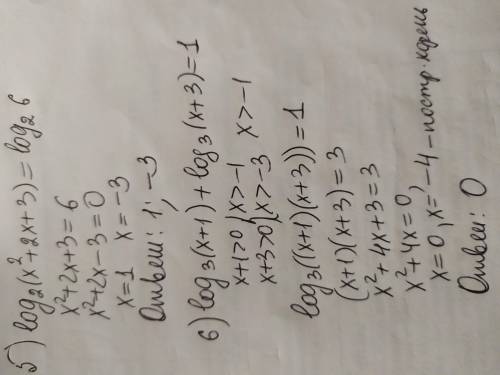 5) log₂(x²+2x+3) = log₂ 6
x²+2x+3=6
x²+2x-3=0
x=1 x=-3
Ответ: 1; -3
6) log₃(x+1)+log₃(x+3)=1
x+1>0 { x>-1
x+3>0 { x>-3 x>-1
log₃((x+1)(x+3))=1
(x+1)(x+3)=3
x²+4x+3=3
x²+4x=0,
x=0, x=-4 - постр. корень
Ответ: 0